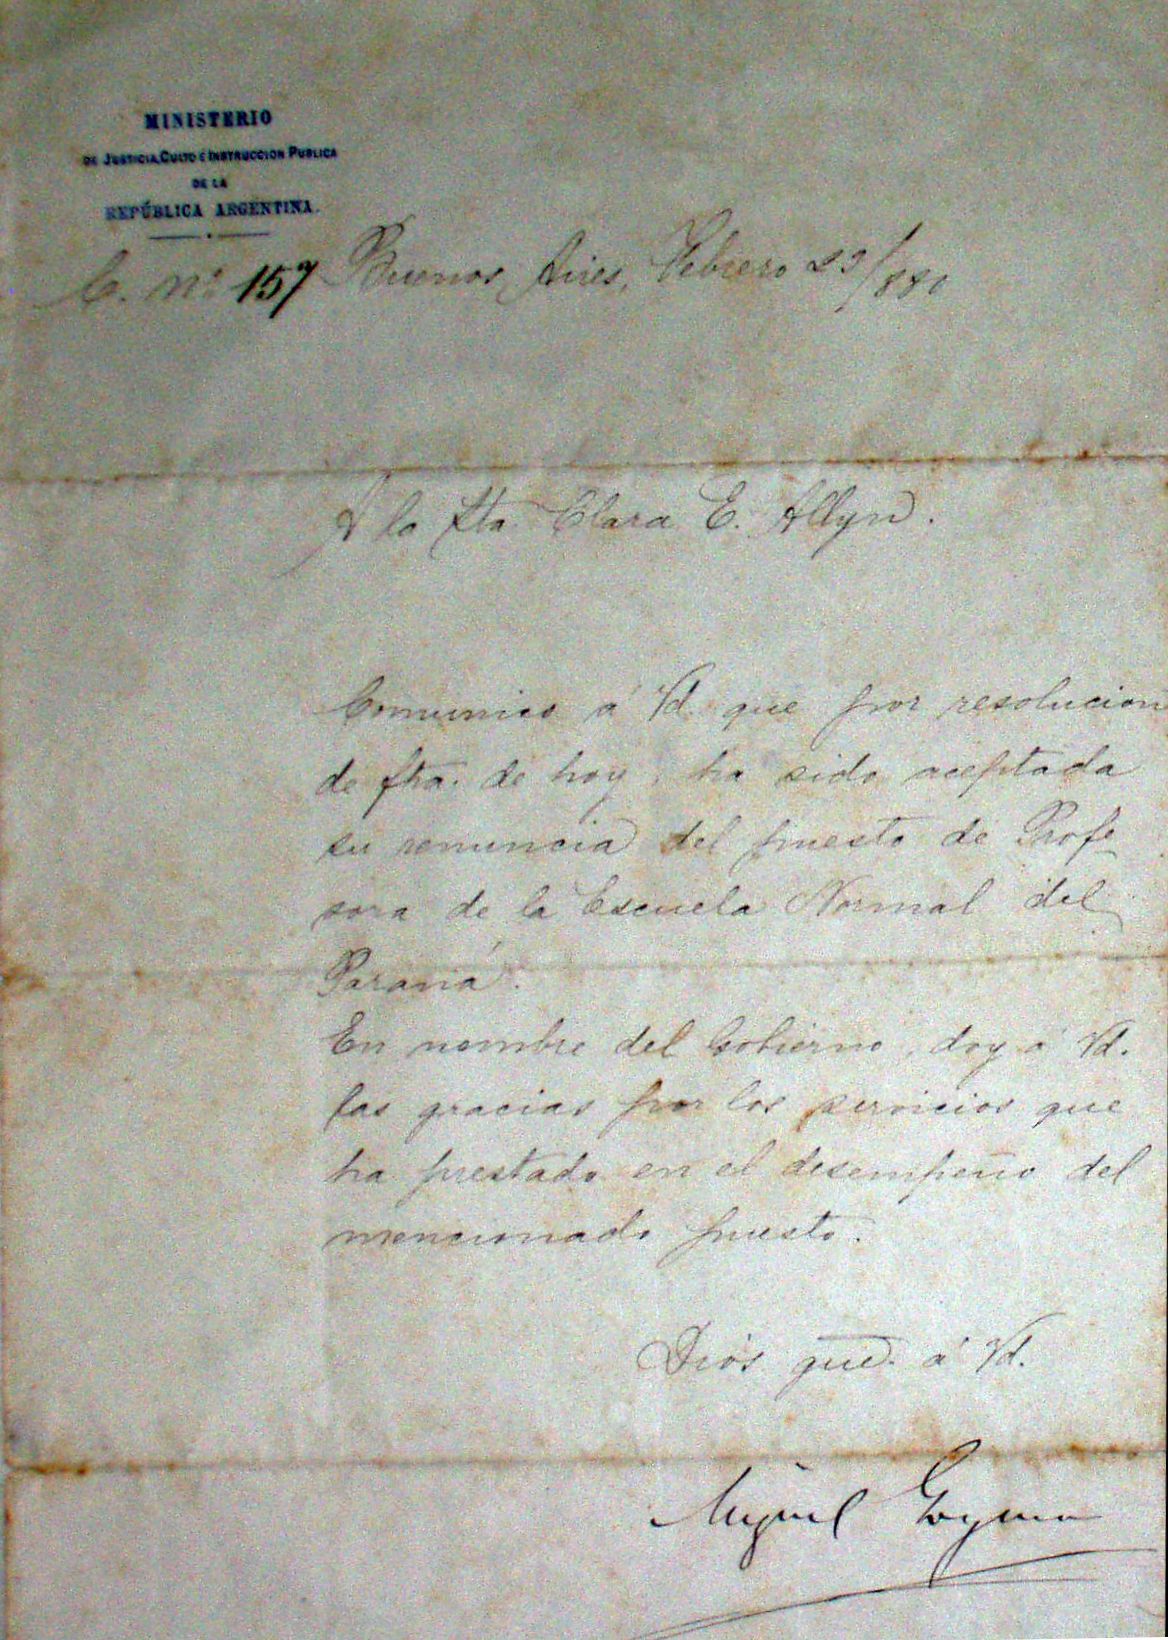 MINISTERIO
DE JUSTICIA, CULTO É INSTRUCCION PUBLICA
DE LA
REPÚBLICA ARGENTINA.
C. Nº 157 Buenos Aires, Febrero 23/880
Á la Sta Clara E. Allyn.
Comunico á Vd. que por resolucion
de fha. de hoy, ha sido aceptada
su renuncia del puesto de Profe
sora de la Escuela Normal del
Paraná.
En nombre del Gobierno, doy á Vd.
las gracias por los servicios que
ha prestado en el desempeño del
mencionado puesto.
Dios gue. á Vd.
Miguel Goyena